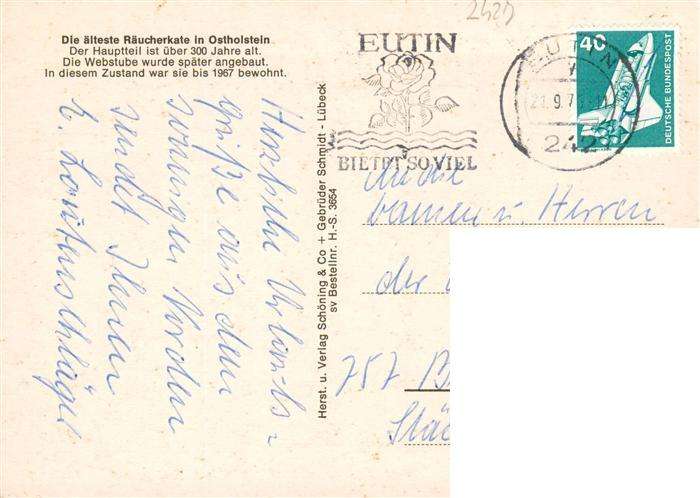 2420
Die älteste Räucherkate in Ostholstein
Der Hauptteil ist über 300 Jahre alt.
Die Webstube wurde später angebaut.
In diesem Zustand war sie bis 1967 bewohnt.
EUTIN
BIETET SO VIEL
EUTIN
21.9.7
242
40
DEUTSCHE BUNDESPOST
Herzliche Urlaubs-
grüße aus dem
sonnigen Norden
sendet Ihnen
E. Lautenschläger
Herst. u. Verlag Schöning & Co + Gebrüder Schmidt - Lübeck
sv Bestellnr. H.-S. 3654
An die
Damen u. Herren
der
757 B
Stä